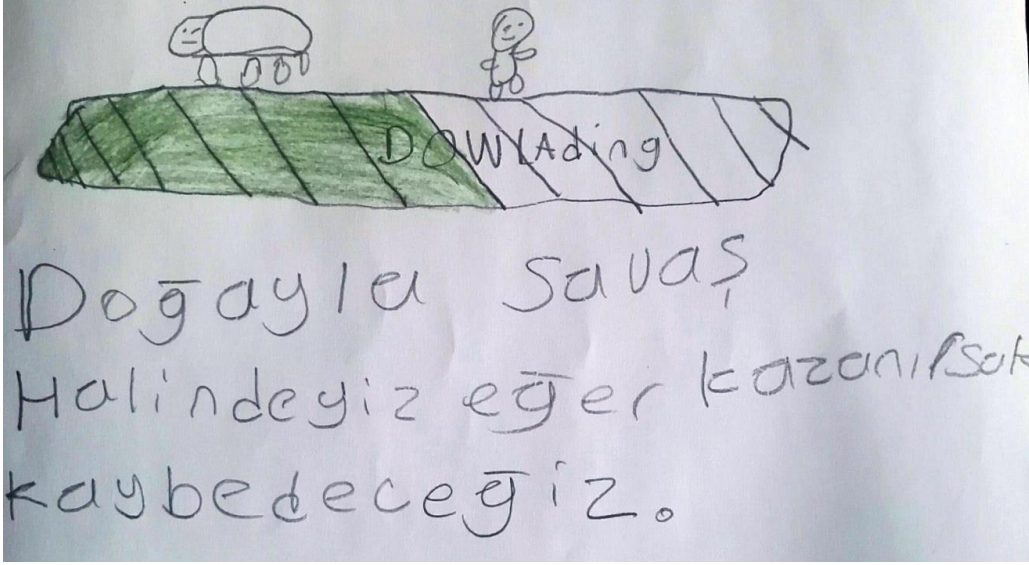 DOWLAding
Doğayla Savaş
Halindeyiz eğer kazanırsak
kaybedeceğiz.